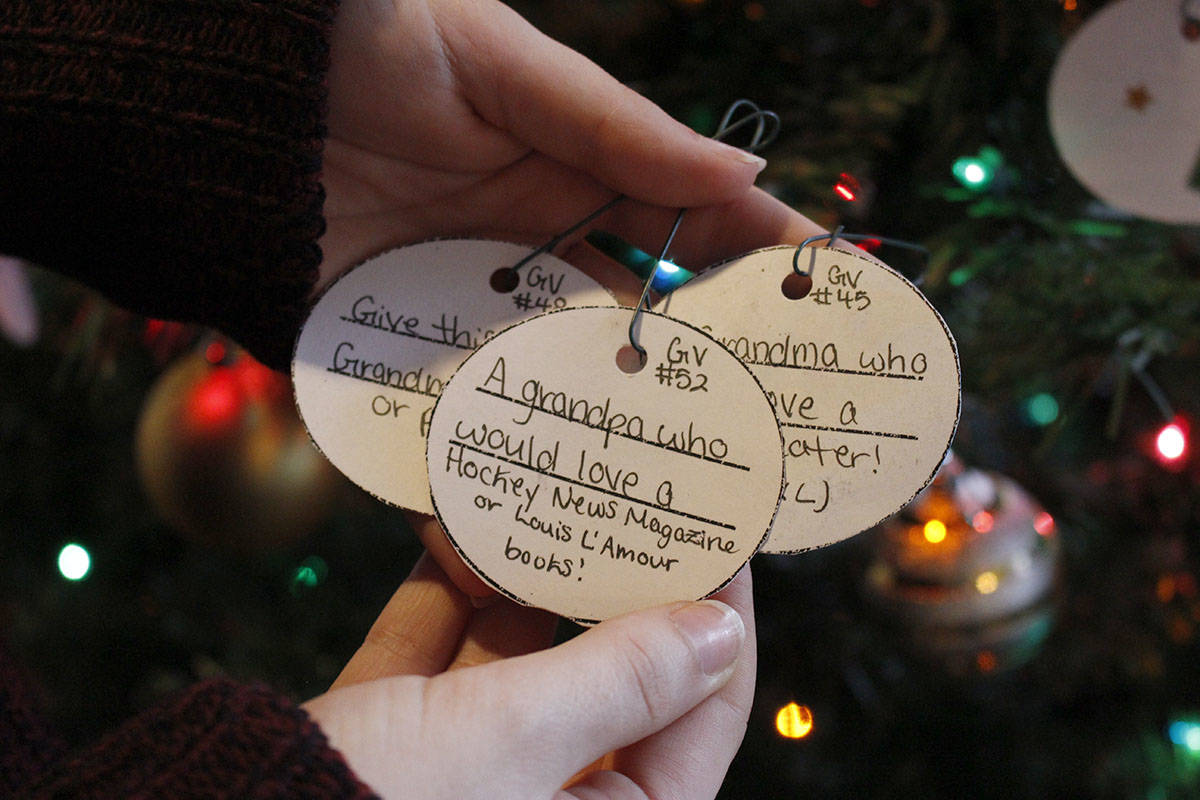 GV
#48
Give this
or
GV
#52
A grandpa who
would love a
Hockey News Magazine
or Louis L'Amour
books!
GV
#45
who
a
(L)